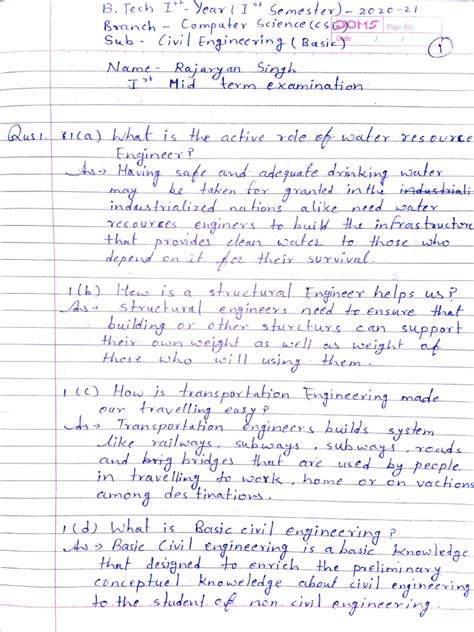 B. Tech Ist - Year (Ist Semester) - 2020-21
Branch - Computer Science (CSE) DOMS Page No.
Sub - Civil Engineering (Basic) Date / / 1
Name - Rajaryan Singh
Ist Mid term examination
Qus1. 1(a) What is the active role of water resource
Engineer?
Ans → Having safe and adequate drinking water
may be taken for granted in the industriali
industrialized nations alike need water
resources enginers to build the infrastructure
that provides clean water to those who
depend on it for their survival.
1(b) How is a structural Engineer helps us?
Ans → structural engineers need to ensure that
building or other sturcturs can support
their own weight as well as weight of
those who will using them.
1(c) How is transportation Engineering made
our travelling easy?
Ans → Transportation engineers builds system
like railways, subways, subways, roads
and brig bridges that are used by people
in travelling to work, home or on vactions
among destinations.
1(d) What is Basic civil engineering?
Ans → Basic Civil engineering is a basic knowledge
that designed to enrich the preliminary
conceptuel knoweledge about civil engineering
to the student of non civil engineering.